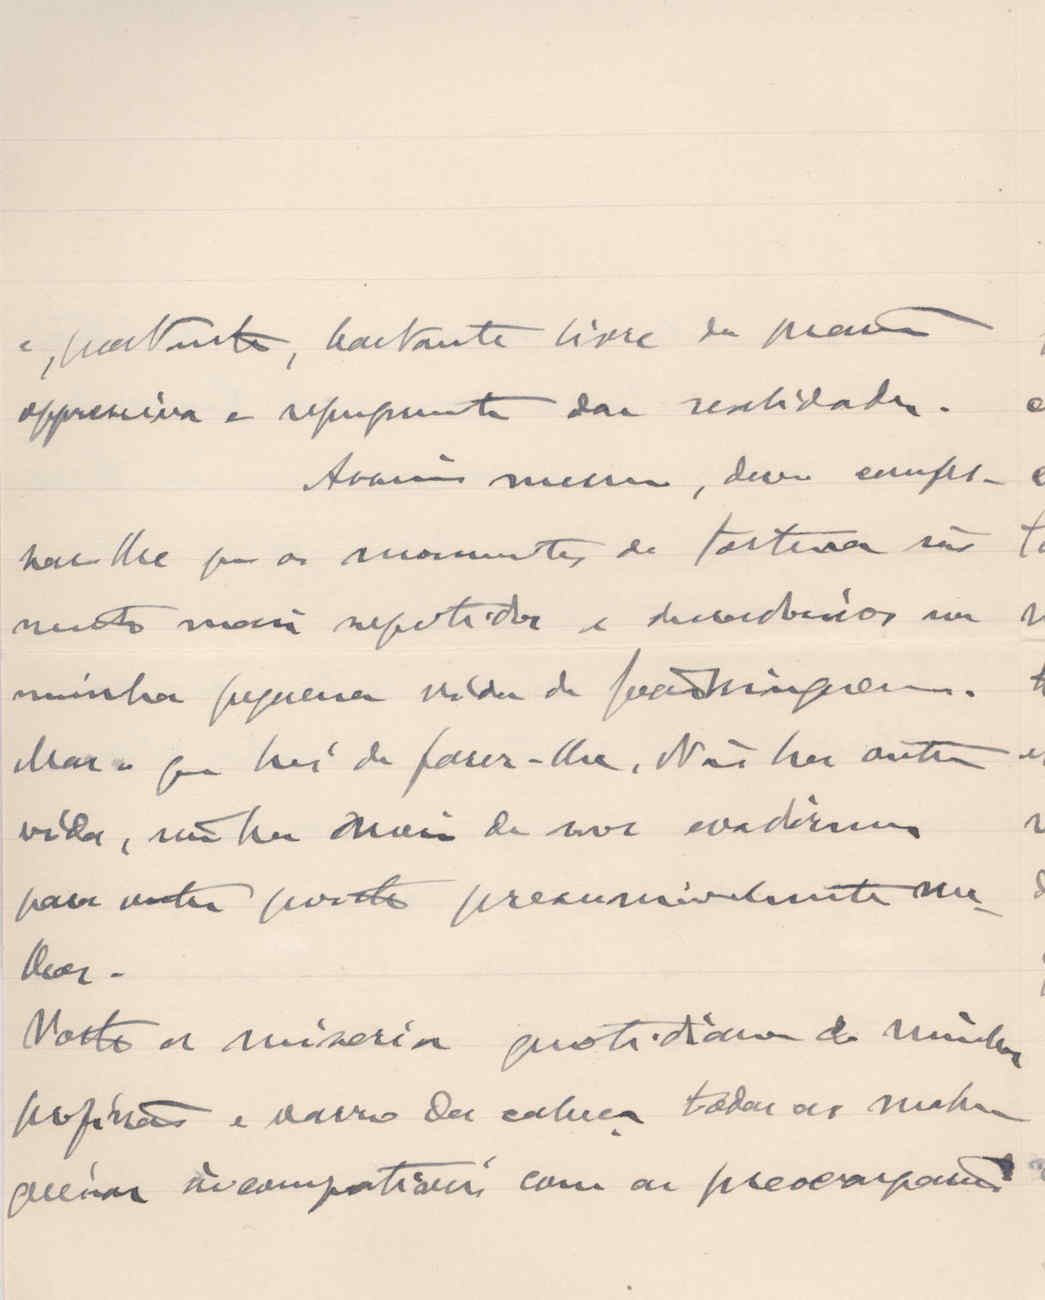 e, portanto, bastante livre da pressão
oppressiva e repugnante das realidades.
Assim mesmo, devo confes-
sar-lhe que os momentos de tortura são
muito mais repetidos e duradouros na
minha pequena vida de joão ninguem.
Mas o que hei de fazer-lhe, Não ha outra
vida, não ha meio de nos evadirmos
para outra presumivelmente me-
lhor.
Volto a miseria quotidiana da minha
profissão e varro da cabeça todas as
incompativeis com as preoccupações